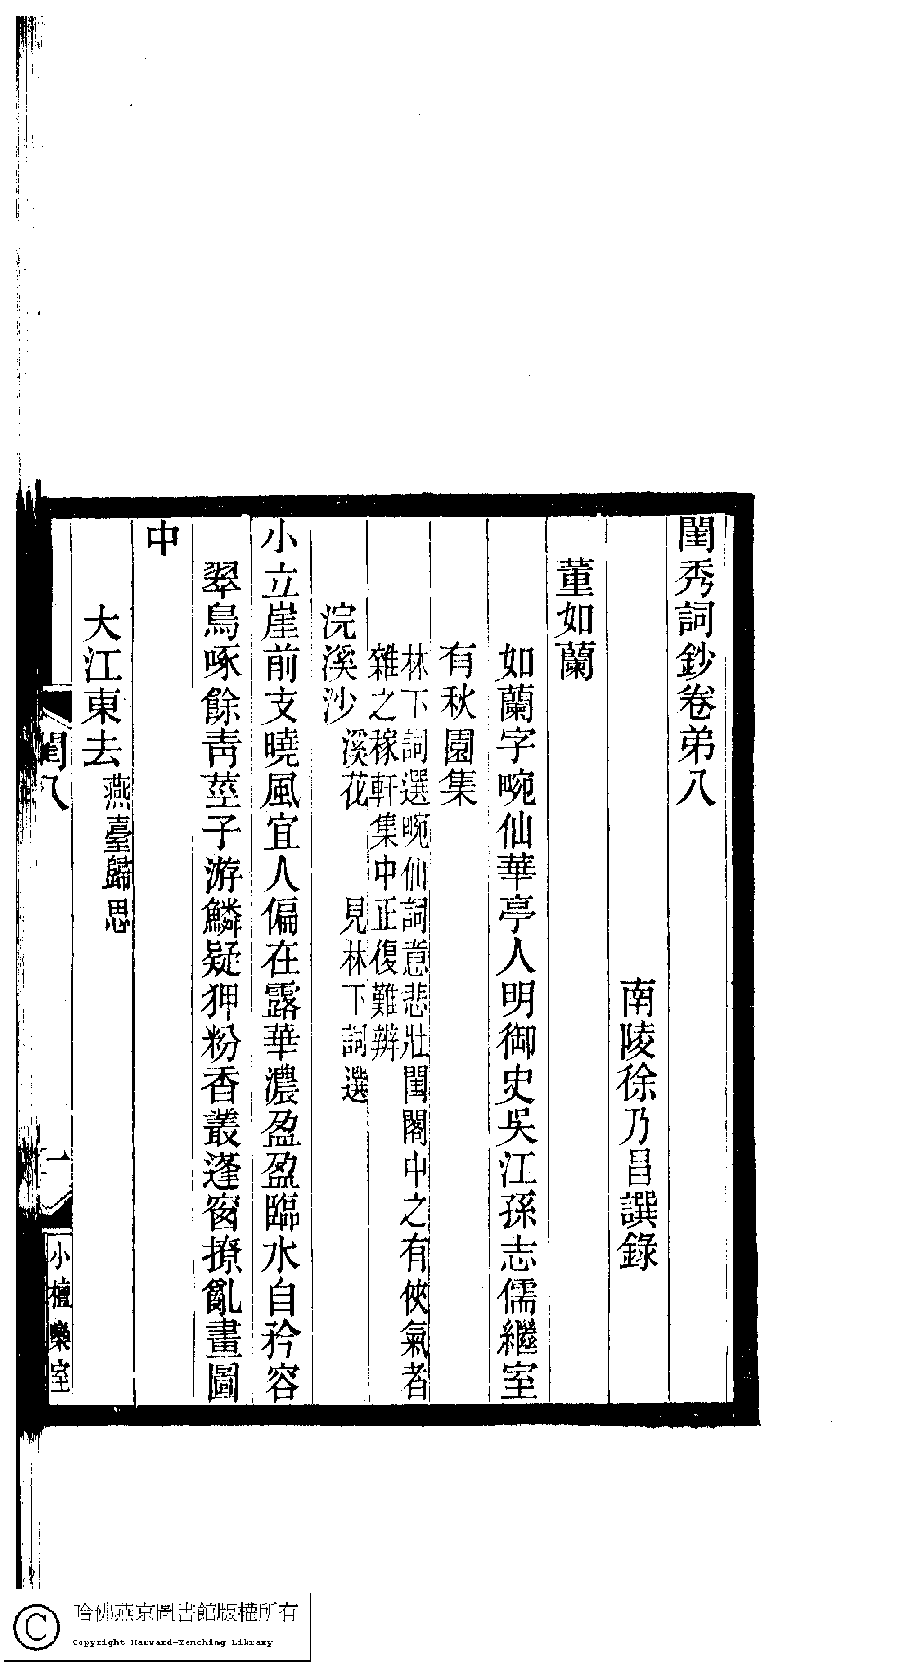 閨秀詞鈔卷弟八
南陵徐乃昌譔錄
董如蘭
如蘭字畹仙華亭人明御史吳江孫志儒繼室
有秋園集
林下詞選畹仙詞意悲壯閨閣中之有俠氣者
雜之稼軒集中正復難辨
浣溪沙 溪花 見林下詞選
小立崖前支曉風宜人偏在露華濃盈盈臨水自矜容
翠鳥啄餘靑莖子游鱗疑狎粉香叢蓬窗撩亂畫圖
中
大江東去 燕臺歸思
閨八
一
小檀欒室
哈佛燕京圖書館版權所有
Copyright Harvard-Yenching Library